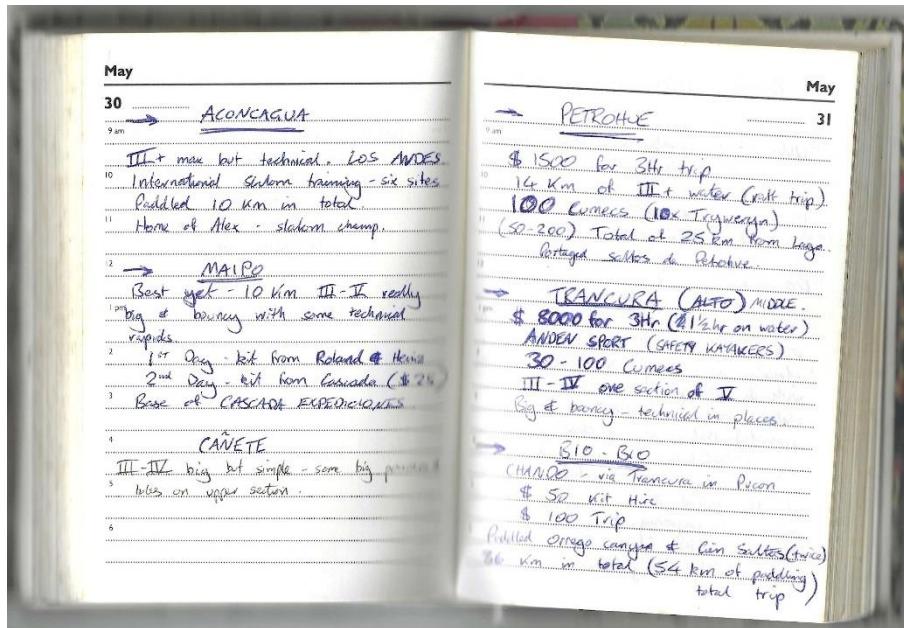 May
30
→ ACONCAGUA
9 am
III+ max but technical. LOS ANDES
10
International slalom training - six sites
Paddled 10 Km in total
11
Home of Alex - slalom champ.
2
→ MAIPO
Best yet - 10 Km III-V really
1 pm
big & bouncy with some technical
rapids
2
1ST Day - kit from Roland &
2nd Day - kit from Cascada ($25)
3
Base of CASCADA EXPEDICIONES
4
CAÑETE
III-IV big but simple - some big
5
holes on upper section.
6
May
31
→ PETROHUE
9 am
$ 1500 for 3Hr trip
10
14 Km of III+ water (raft trip).
100 Cumecs (10x Tryweryn)
11
(50-200) Total of 25 km from Lago.
12
Portaged saltos de Petrohue.
→ TRANCURA (ALTO) MIDDLE.
$ 8000 for 3Hr (1½hr on water)
ANDEN SPORT (SAFETY KAYAKERS)
30 - 100 Cumecs
III-IV one section of V
Big & bouncy - technical in places.
→ BIO-BIO
CHANDO - via Trancura in Pucon
$ 50 Kit Hire
$ 100 Trip
Paddled Orrego canyon & Saltos (twice)
Km in total (54 km of paddling
total trip)